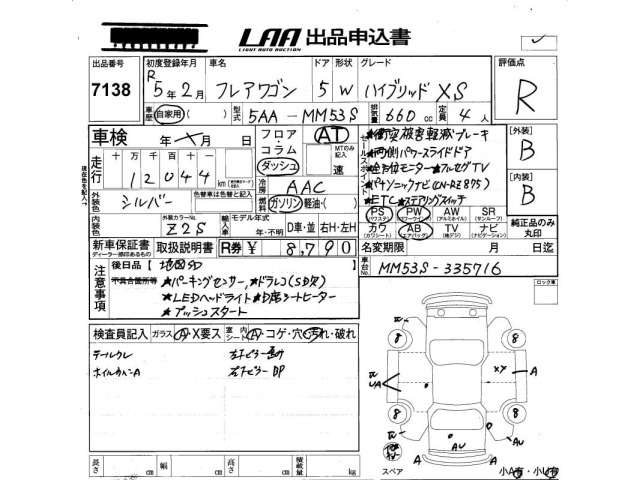 LAA 出品申込書
LIGHT AUTO AUCTION
出品番号 初度登録年月 車名 ドア 形状 グレード 評価点
7138 R 5年2月 フレアワゴン 5 W ハイブリッド XS R
車歴 自家用 型式 5AA-MM53S 排気量 660 cc 定員 4 人
車検 年 月 日 フロア・コラム・ダッシュ AT MTのみ記入 速
走行 十 万 千 百 十
12044 km
冷房 AAC
外装色 シルバー 色替車は色替と記入 燃料 ガソリン 軽油・( )
内装色 外装カラーNo. Z2S 輸入車 モデル年式 年・不明 D車・並 右H・左H
新車保証書 取扱説明書 R券 ¥ 8,790
ディーラー捺印あるもの
セールスポイント
★衝突被害軽減ブレーキ
★両側パワースライドドア
★全方位モニター★フルセグTV
★パナソニックナビ(CN-RZ875)
★ETC★ステアリングスイッチ
PS PW AW SR
(パワステ) (パワーウインド) (アルミホイル) (サンルーフ)
カワ AB TV ナビ
(カワシート) (エアバッグ) (地デジ) (ナビゲーション)
【外装】 B
【内装】 B
純正品のみ丸印
名変期限 月 日迄
車台No. MM53S-335716
注意事項
後日品【地図SD 】
不具合箇所等 ★パーキングセンサー,★ドラレコ(SD欠)
★LEDヘッドライト★D席シートヒーター
★プッシュスタート
ロック車
検査員記入 ガラス A・X要ス 室内シート A・コゲ・穴・汚れ・破れ
テールワレ 左下ピラー歪み
ホイルカバーA 右下ピラーBP
8 8 8 8
UA XY A
AU AU A A
スペア 小A有・小U有
長さ cm 幅 cm 高さ cm 積載量 kg